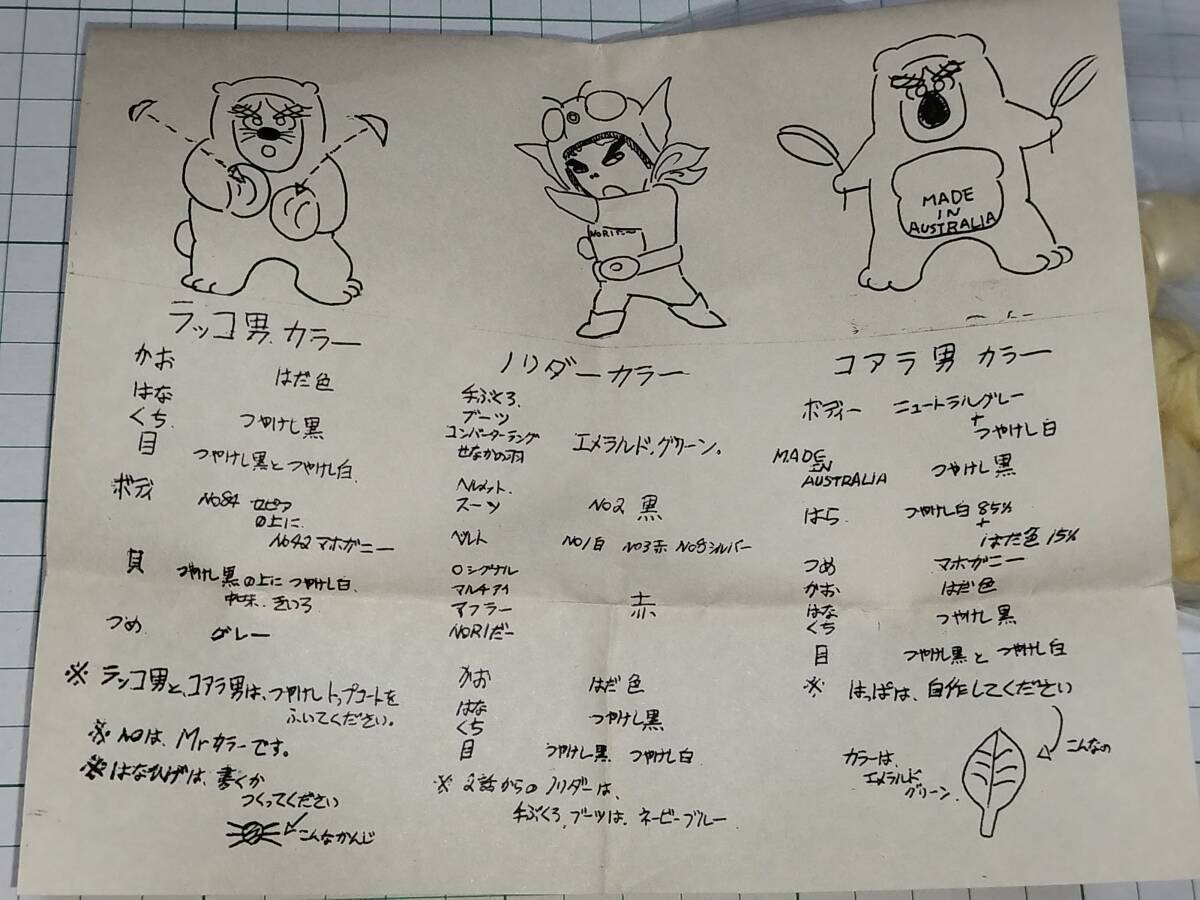 NORIだ〜
MADE
IN
AUSTRALIA
ラッコ男 カラー
かお
はな
はだ色
くち
つやけし黒
目
つやけし黒とつやけし白
ボディ
No84 セピア
の上に
No42 マホガニー
貝
つやけし黒の上につやけし白
中味 きいろ
つめ
グレー
※ ラッコ男と、コアラ男は、つやけしトップコートを
ふいてください。
※ NOは、Mrカラーです。
※ はなひげは、書くか
つくってください
こんなかんじ
ノリダーカラー
手ぶくろ
ブーツ
コンバーターラング
せなかの羽
エメラルド,グリーン。
ヘルメット
スーツ
NO2 黒
ベルト
NO1白 NO3赤 NO8シルバー
Oシグナル
マルチアイ
マフラー
赤
NORIだー
かお
はだ色
はな
くち
つやけし黒
目
つやけし黒 つやけし白
※ 2話からのノリダーは、
手ぶくろ,ブーツは、ネービーブルー
コアラ男 カラー
ボディー
ニュートラルグレー
+
つやけし白
MADE
IN
AUSTRALIA
つやけし黒
はら
つやけし白 85%
+
はだ色 15%
つめ
マホガニー
かお
はだ色
はな
くち
つやけし黒
目
つやけし黒と つやけし白
※ はっぱは、自作してください
こんなの
カラーは、
エメラルド
グリーン.